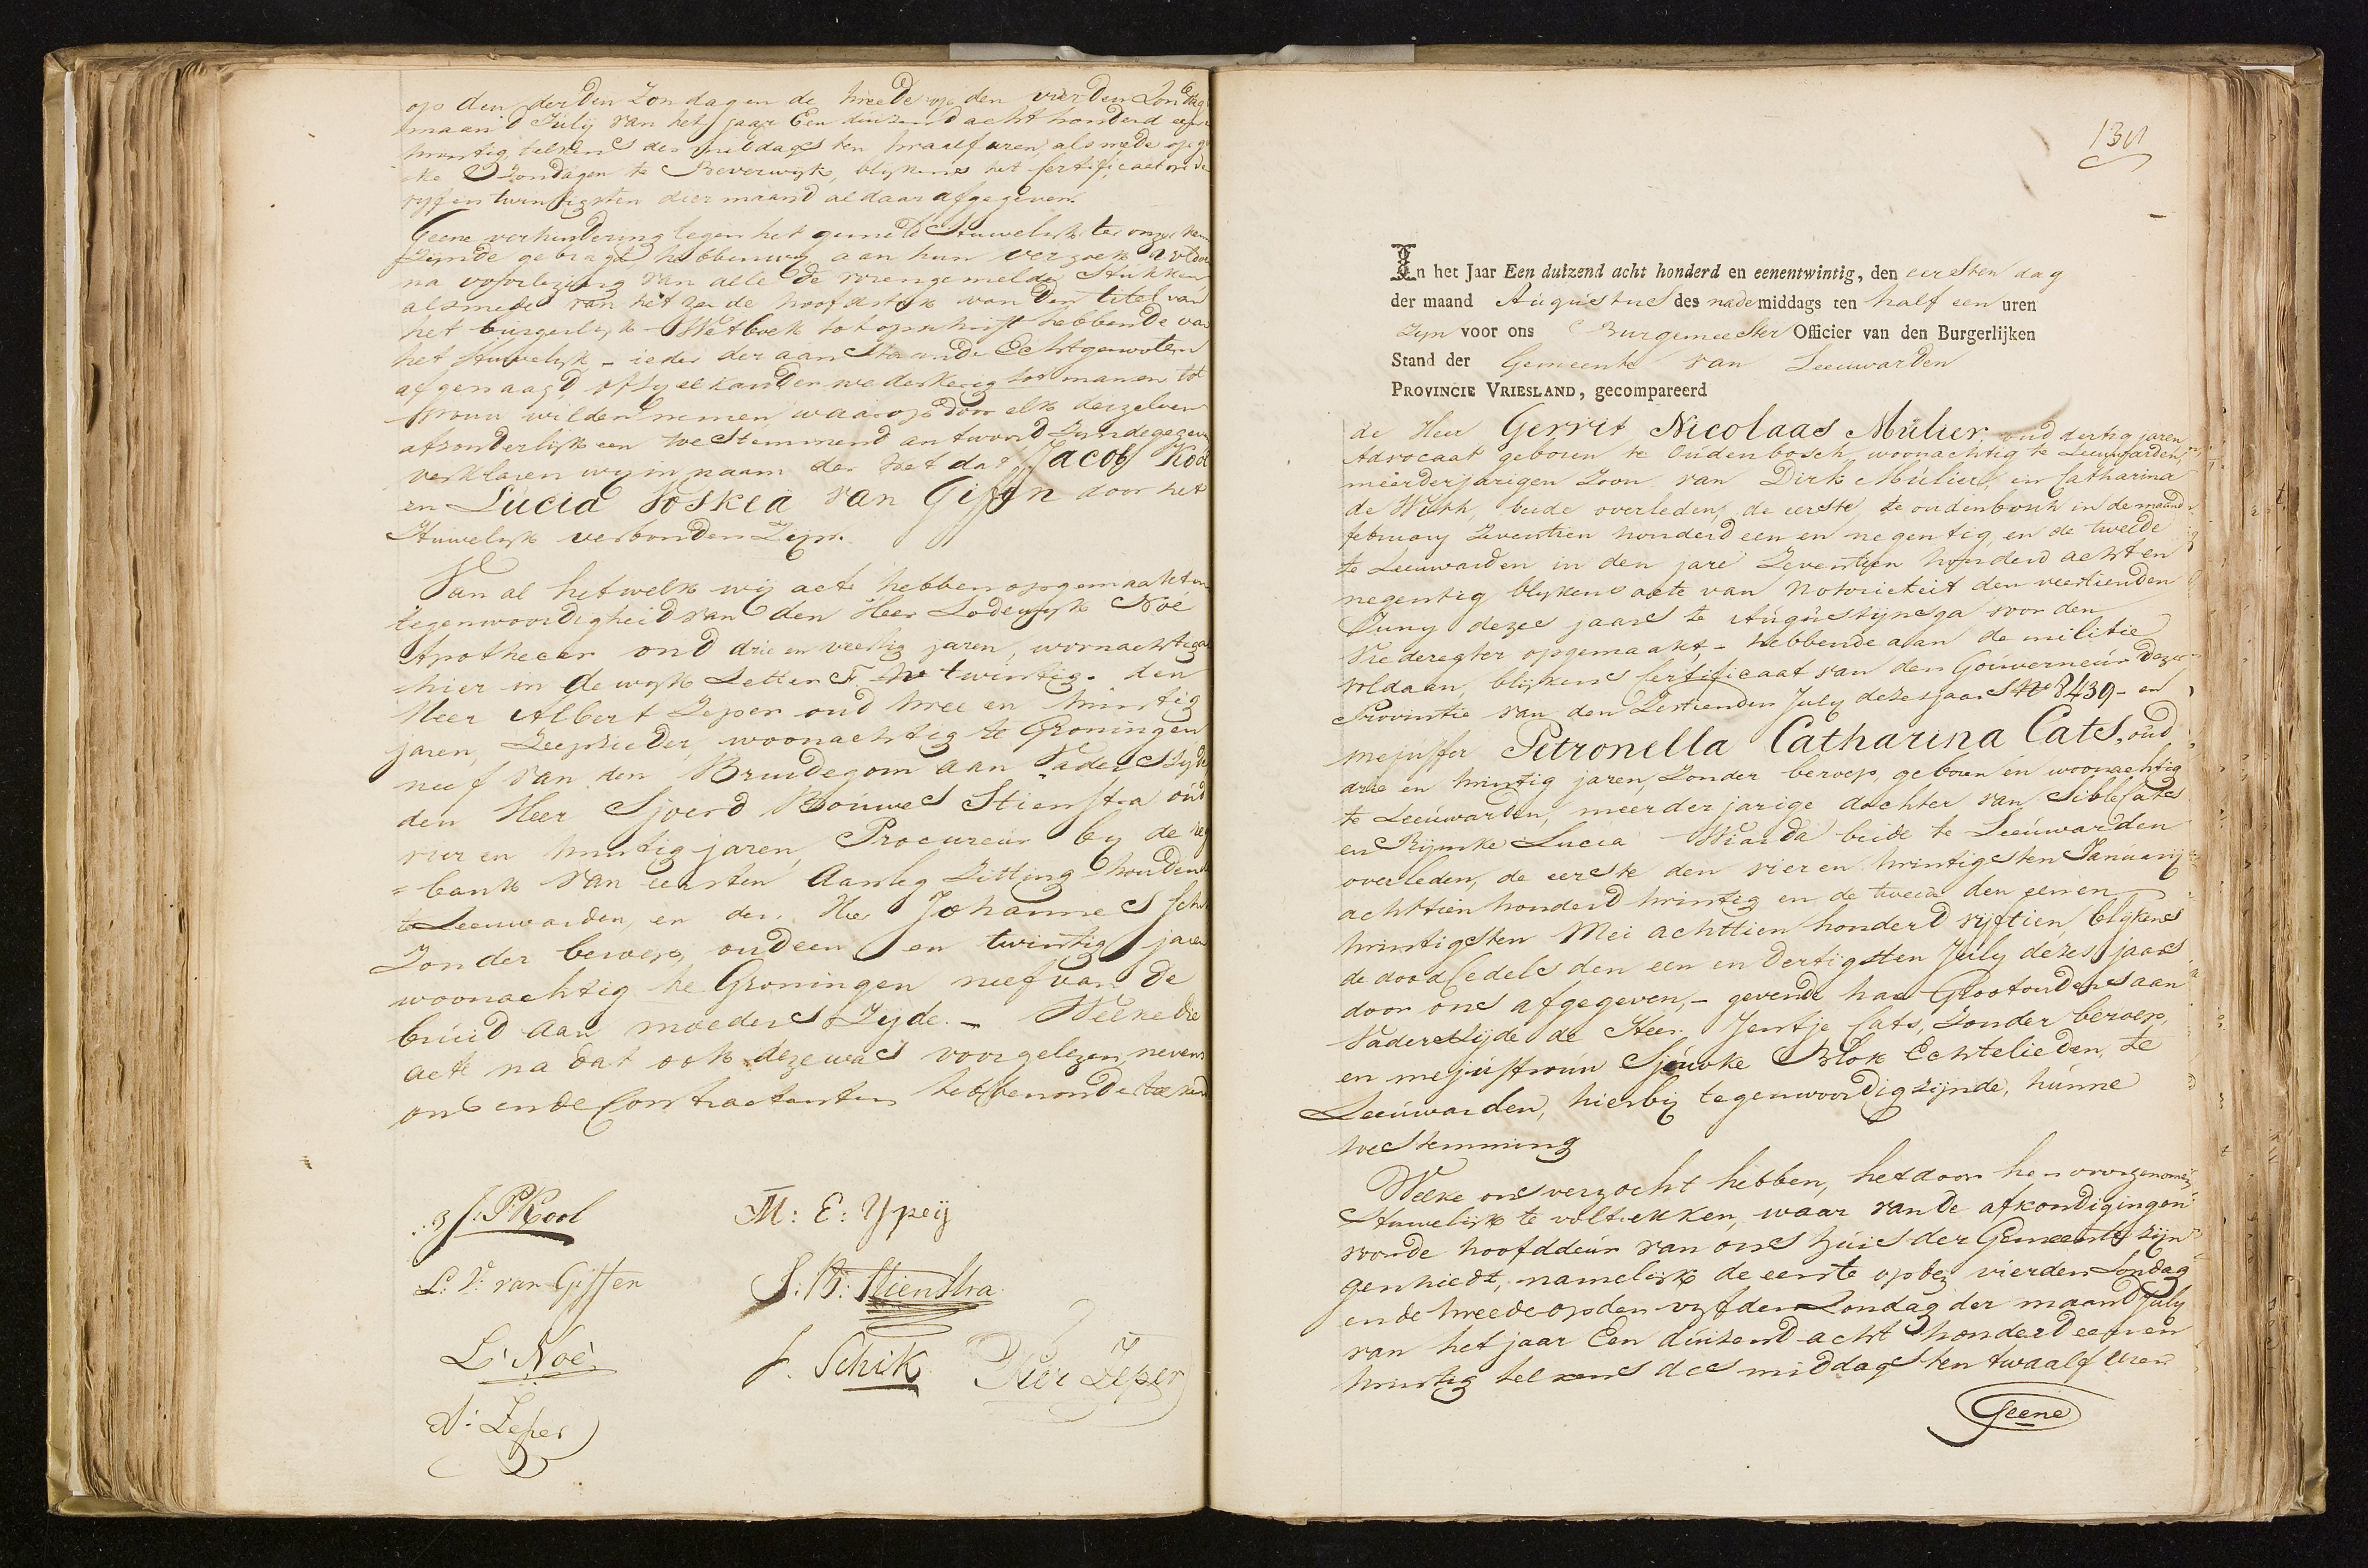 op den derden Zondag en de tweede op den vierden Zondag
maand July van het jaar Een duizend acht honderd een
twintig telkens des middags ten twaalf uren, alsmede op ge
Zondagen te Beverwijk, blijkens het Certificaat op de
vyf en twintigsten dier maand aldaar afgegeven.
Geene verhindering tegen het gemeld Huwelijk ter onzer kenn
Zijnde gebragt, hebben wy, aan hun verzoek voldoen
na voorlezing van alle de voren gemelde Stukken
alsmede van het zesde hoofdstuk van den titel van
het burgerlyk Wetboek tot opschrift hebbende van
het Huwelyk - ieder der aanstaande Echtgenooten
afgevraagd, of zy elkander wederkeerig tot man en tot
vrouw wilden nemen waarop door elk derzelven
afzonderlijk een toestemmend antwoord Zynde gegeven
verklaren wy in naam der wet dat Jacob Kool
en Lucia Voskea van Giffen door het
Huwelyk verbonden Zyn.
Van al hetwelk wij acte hebben opgemaakt in
tegenwoordigheid van den Heer Lodewyk Noë
Apothecar oud drie en veertig jaren, woonachtig
hier in de wyk Letter F No twintig. den
Heer Albert Zeper oud twee en twintig
jaren, Zeepzieder, woonachtig te Groningen
neef van den Bruidegom aan Vaders Zyde
den Heer Sjoerd Bouwes Stienstra oud
vier en twintig jaren, Procureur by de reg
= bank van eersten Aanleg Zitting houdende
te Leeuwarden, en den Heer Johannes Schi
Zonder beroep, oud een en twintig jaren
woonachtig te Groningen neef van de
bruid aan moeders Zyde. - Welke die
acte na dat ook deze was voorgelezen, nevens
ons en de Contractanten hebben onderteekend
J: P Kool
M: E: Ypeij
L: V: van Giffen
S: B: Stienstra
L: Noë
J. Schik
Pier Zeper
A: Zeper
130
In het Jaar Een duizend acht honderd en eenentwintig, den eersten dag
der maand Augustus des nademiddags ten half een uren
Zyn voor ons Burgemeester Officier van den Burgerlijken
Stand der Gemeente van Leeuwarden
PROVINCIE VRIESLAND, gecompareerd
de Heer Gerrit Nicolaas Mulier, oud dertig jaren
Advocaat geboren te Oudenbosch woonachtig te Leeuwarden,
meerderjarigen Zoon van Dirk Mulier, en Catharina
de With, beide overleden, de eerste te oudenbosch in de maand
february Zeventien honderd een en negentig, en de tweede
te Leeuwarden in den jare Zeventien honderd acht en
negentig blykens acte van Notorieteit den veertienden
Juny dezes jaars te Augustynsga voor den
Vrederegter opgemaakt, - hebbende aan de militie
voldaan, blykens Certificaat van den Gouverneur dezer
Provintie van den Zestienden July dezes jaars No 8439 - en
mejuffer Petronella Catharina Cats, oud
drie en twintig jaren, Zonder beroep, geboren en woonachtig
te Leeuwarden, meerderjarige dochter van Sible Cats
en Rijnske Lucia Wiarda beide te Leeuwarden
overleden, de eerste den vier en twintigsten January
achttien honderd twintig en de tweede den een en
twintigsten Mei achttien honderd vyftien, blykens
de dood Cedels den een en dertigsten July dezes jaars
door ons afgegeven, - gevende haar Grootouders aan
Vaderszijde de Heer Jentje Cats, Zonder beroep,
en mejuffrouw Sjouke Blok Echtelieden, te
Leeuwarden, hierby tegenwoordig zijnde, hunne
toestemming
Welke ons verzocht hebben, het door hen voorgenomen
Huwelijk te voltrekken, waar van de afkondigingen
voor de hoofddeur van ons huis der Gemeente zijn
geschiedt, namelijk de eerste op den vierden Zondag
en de tweede op den vyfden Zondag der maand July
van het jaar Een duizend acht honderd een en
twintig telkens des middags ten twaalf uren
Geene